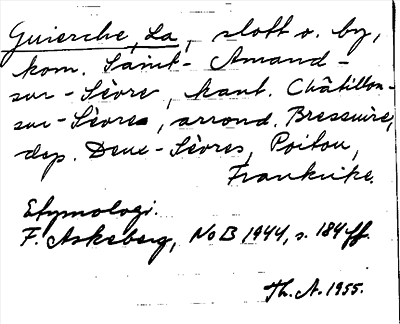 Guierche, La, slott o. by,
kom. Saint-Amand-
sur-Sèvre, kant. Châtillon-
sur-Sèvre, arrond. Bressuire,
dep. Deux-Sèvres, Poitou,
Frankrike.
Etymologi.
F. Askeberg, NoB 1944, s. 184 ff.
Th. A. 1955.